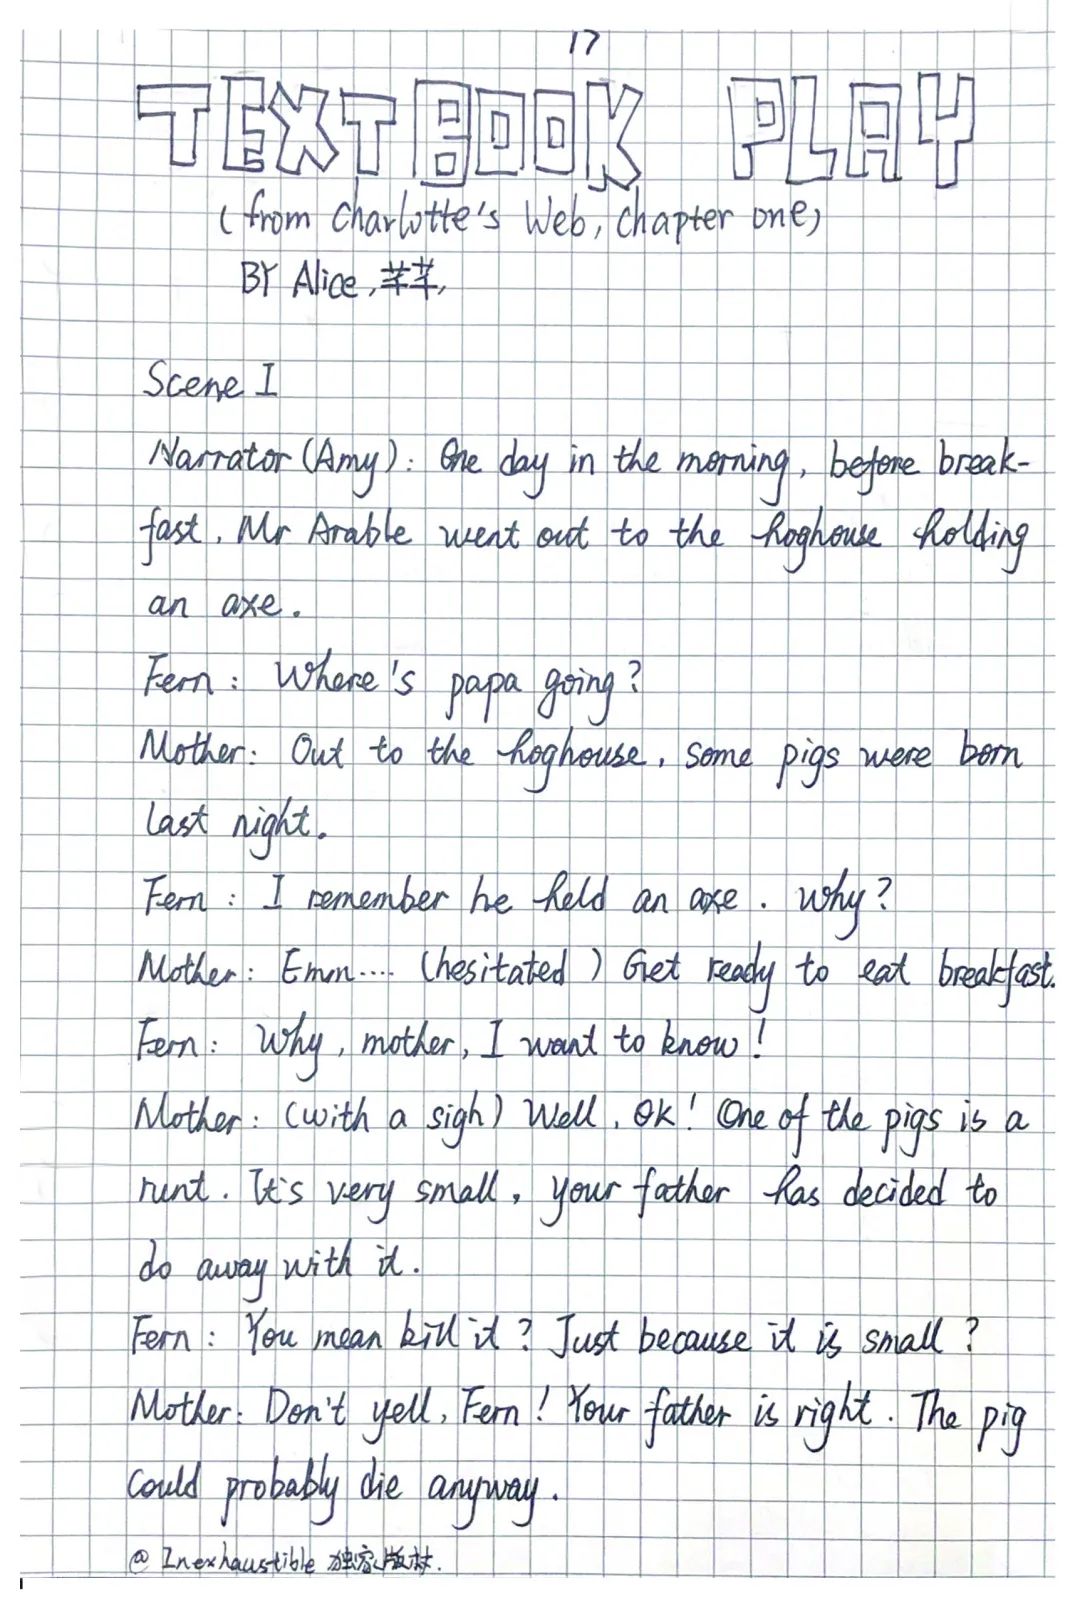 17
TEXTBOOK PLAY
(from Charlotte's Web, chapter one)
BY Alice, 芊芊,
Scene I
Narrator (Amy): One day in the morning, before break-
fast, Mr Arable went out to the hoghouse holding
an axe.
Fern: Where's papa going?
Mother: Out to the hoghouse, some pigs were born
last night.
Fern: I remember he held an axe. Why?
Mother: Emm.... (hesitated) Get ready to eat breakfast.
Fern: Why, mother, I want to know!
Mother: (with a sigh) Well, OK! One of the pigs is a
runt. It's very small, your father has decided to
do away with it.
Fern: You mean kill it? Just because it is small?
Mother: Don't yell, Fern! Your father is right. The pig
could probably die anyway.
@ Inexhaustible 独家版权.